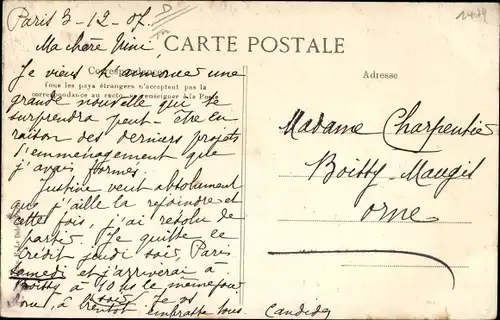 Paris 3-12-07
Ma chère Mimi,
CARTE POSTALE
Correspondance
Tous les pays étrangers n'acceptent pas la
correspondance au recto se renseigner à la Poste
Je viens t'annoncer une
grande nouvelle qui te
surprendra peut-être en
raison des derniers projets
d'emménagement que
j'avais formés.
Justine veut absolument
que j'aille la rejoindre et
cette fois, j'ai résolu de
partir. Je quitte le
Crédit jeudi soir, Paris
samedi et j'arriverai à
Boissy à 10h le même jour
Donc, à bientôt Je vous
embrasse tous.
Candide
Adresse
Madame Charpentier
Boissy-Maugis
Orne